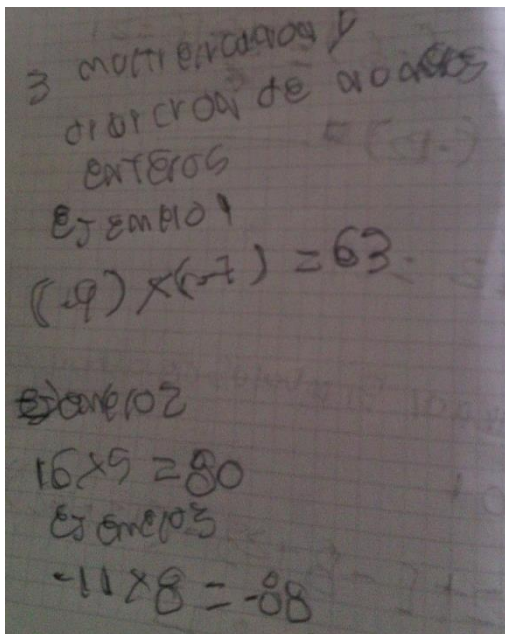 3 multiplicación y
división de números
enteros
Ejemplo 1
(-9) x (-7) = 63
Ejemplo 2
16 x 5 = 80
Ejemplo 3
-11 x 8 = -88